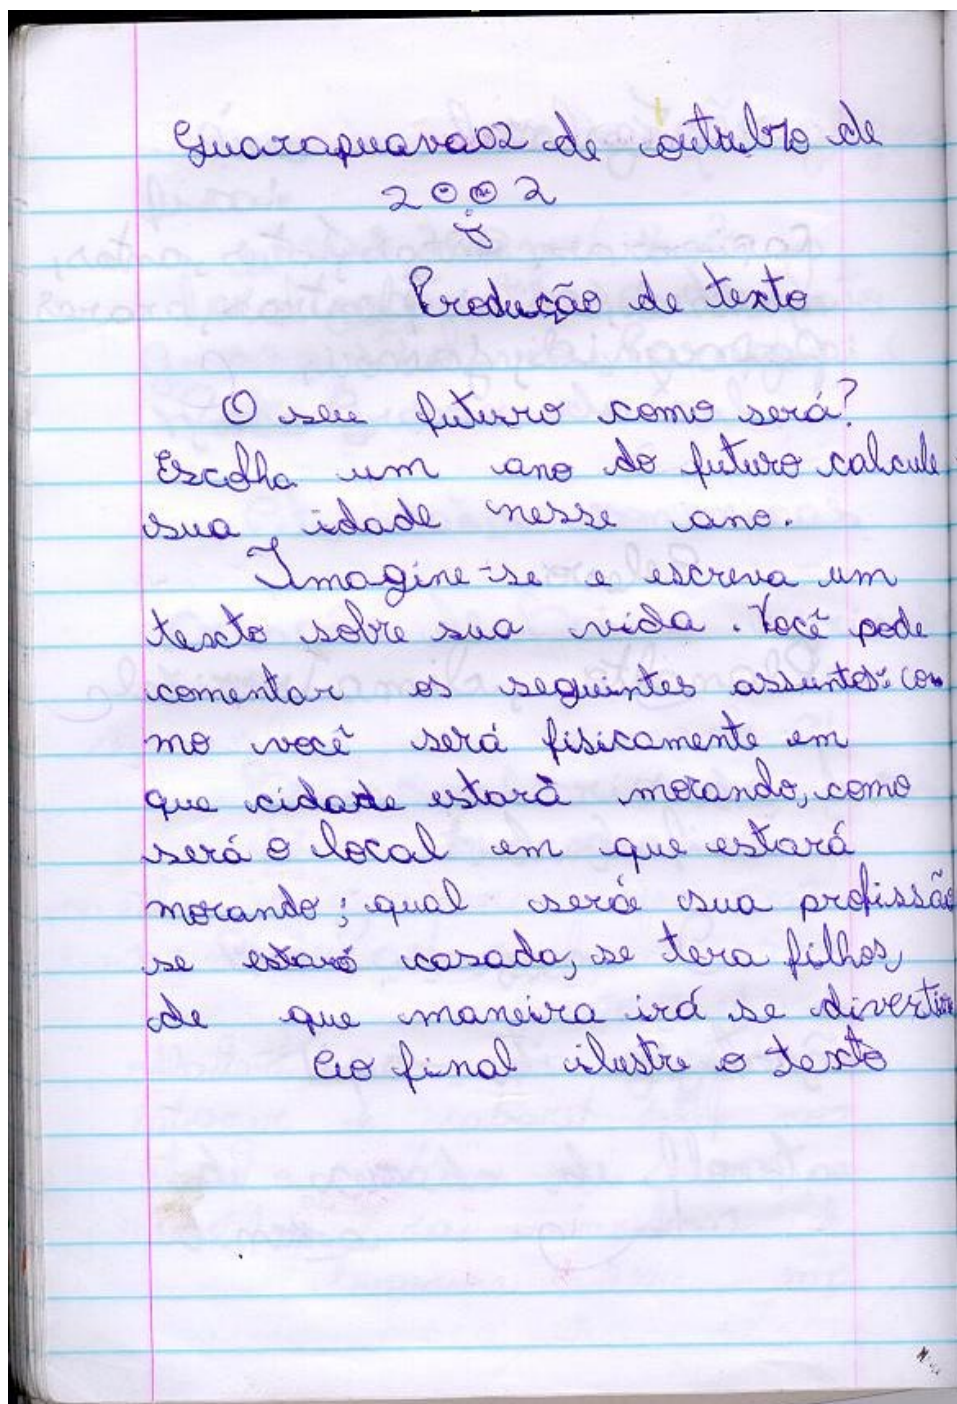 Guarapuava 02 de outubro de
2002
Produção de texto
O seu futuro como será?
Escolha um ano do futuro calcule
sua idade nesse ano.
Imagine-se e escreva um
texto sobre sua vida. Você pode
comentar os seguintes assuntos: co-
mo você será fisicamente em
que cidade estará morando, como
será o local em que estará
morando; qual será sua profissão
se estará casada, se tera filhos,
de que maneira irá se divertir
Ao final ilustre o texto